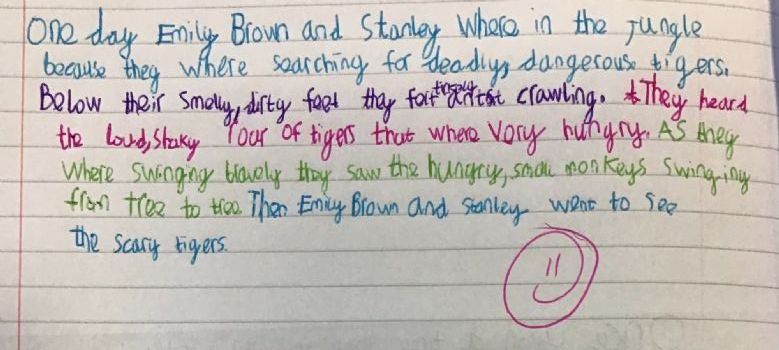 One day Emily Brown and Stanley where in the jungle
because they where searching for deadly, dangerouse tigers.
Below their smelly, dirty feet they felt crawling. They heard
the loud, shaky roar of tigers that where very hungry. As they
where swinging bravely they saw the hungry, small monkeys swinging
from tree to tree. Then Emily Brown and Stanley went to see
the scary tigers.